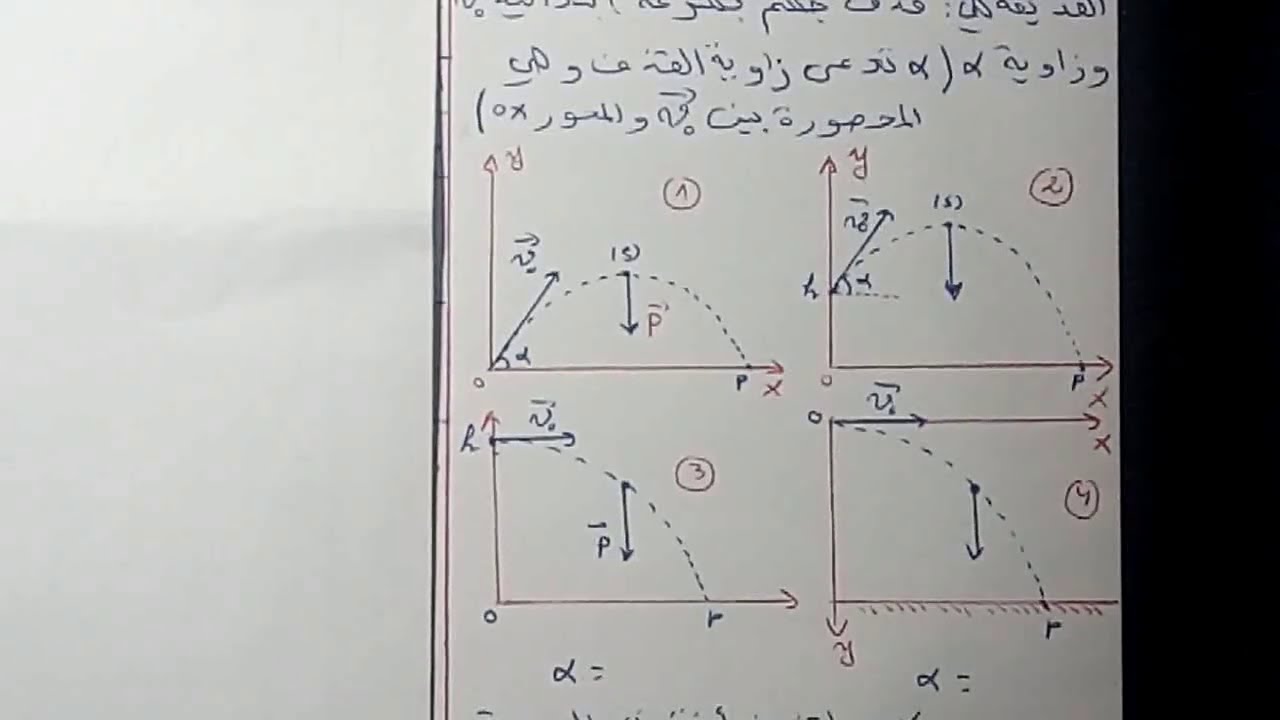 القذيفة هي: قذف جسم بسرعة ابتدائية v₀
وزاوية α (α تدعى زاوية القذف وهي
المحصورة بين v⃗₀ والمحور ox)
y
①
v⃗₀
(S)
P⃗
α
o
P
x
y
②
v⃗₀
(S)
h
α
o
P
x
h
v⃗₀
③
P⃗
o
P
o
v⃗₀
x
④
P
y
α =
α =